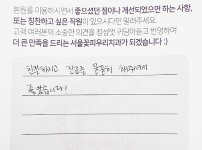 본원을 이용하시면서 좋으셨던 점이나 개선되었으면 하는 사항,
또는 칭찬하고 싶은 직원이 있으시다면 말려주세요.
고객 여러분의 소중한 의견을 정성껏 귀담아듣고 반영하여
더 큰 만족을 드리는 서울꽃피우리치과가 되겠습니다 :)
친절하시고 진료도 꼼꼼히 해주셔서
좋았습니다!